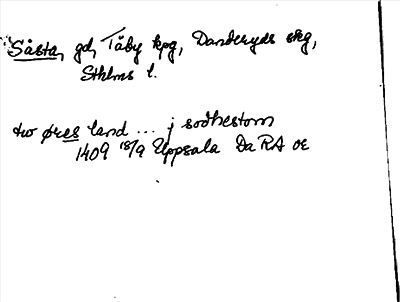 Såsta, gd, Täby kpg, Danderyds skg,
Sthlms l.
tw øres land ... j sodhestom
1409 18/9 Uppsala Da RA oe